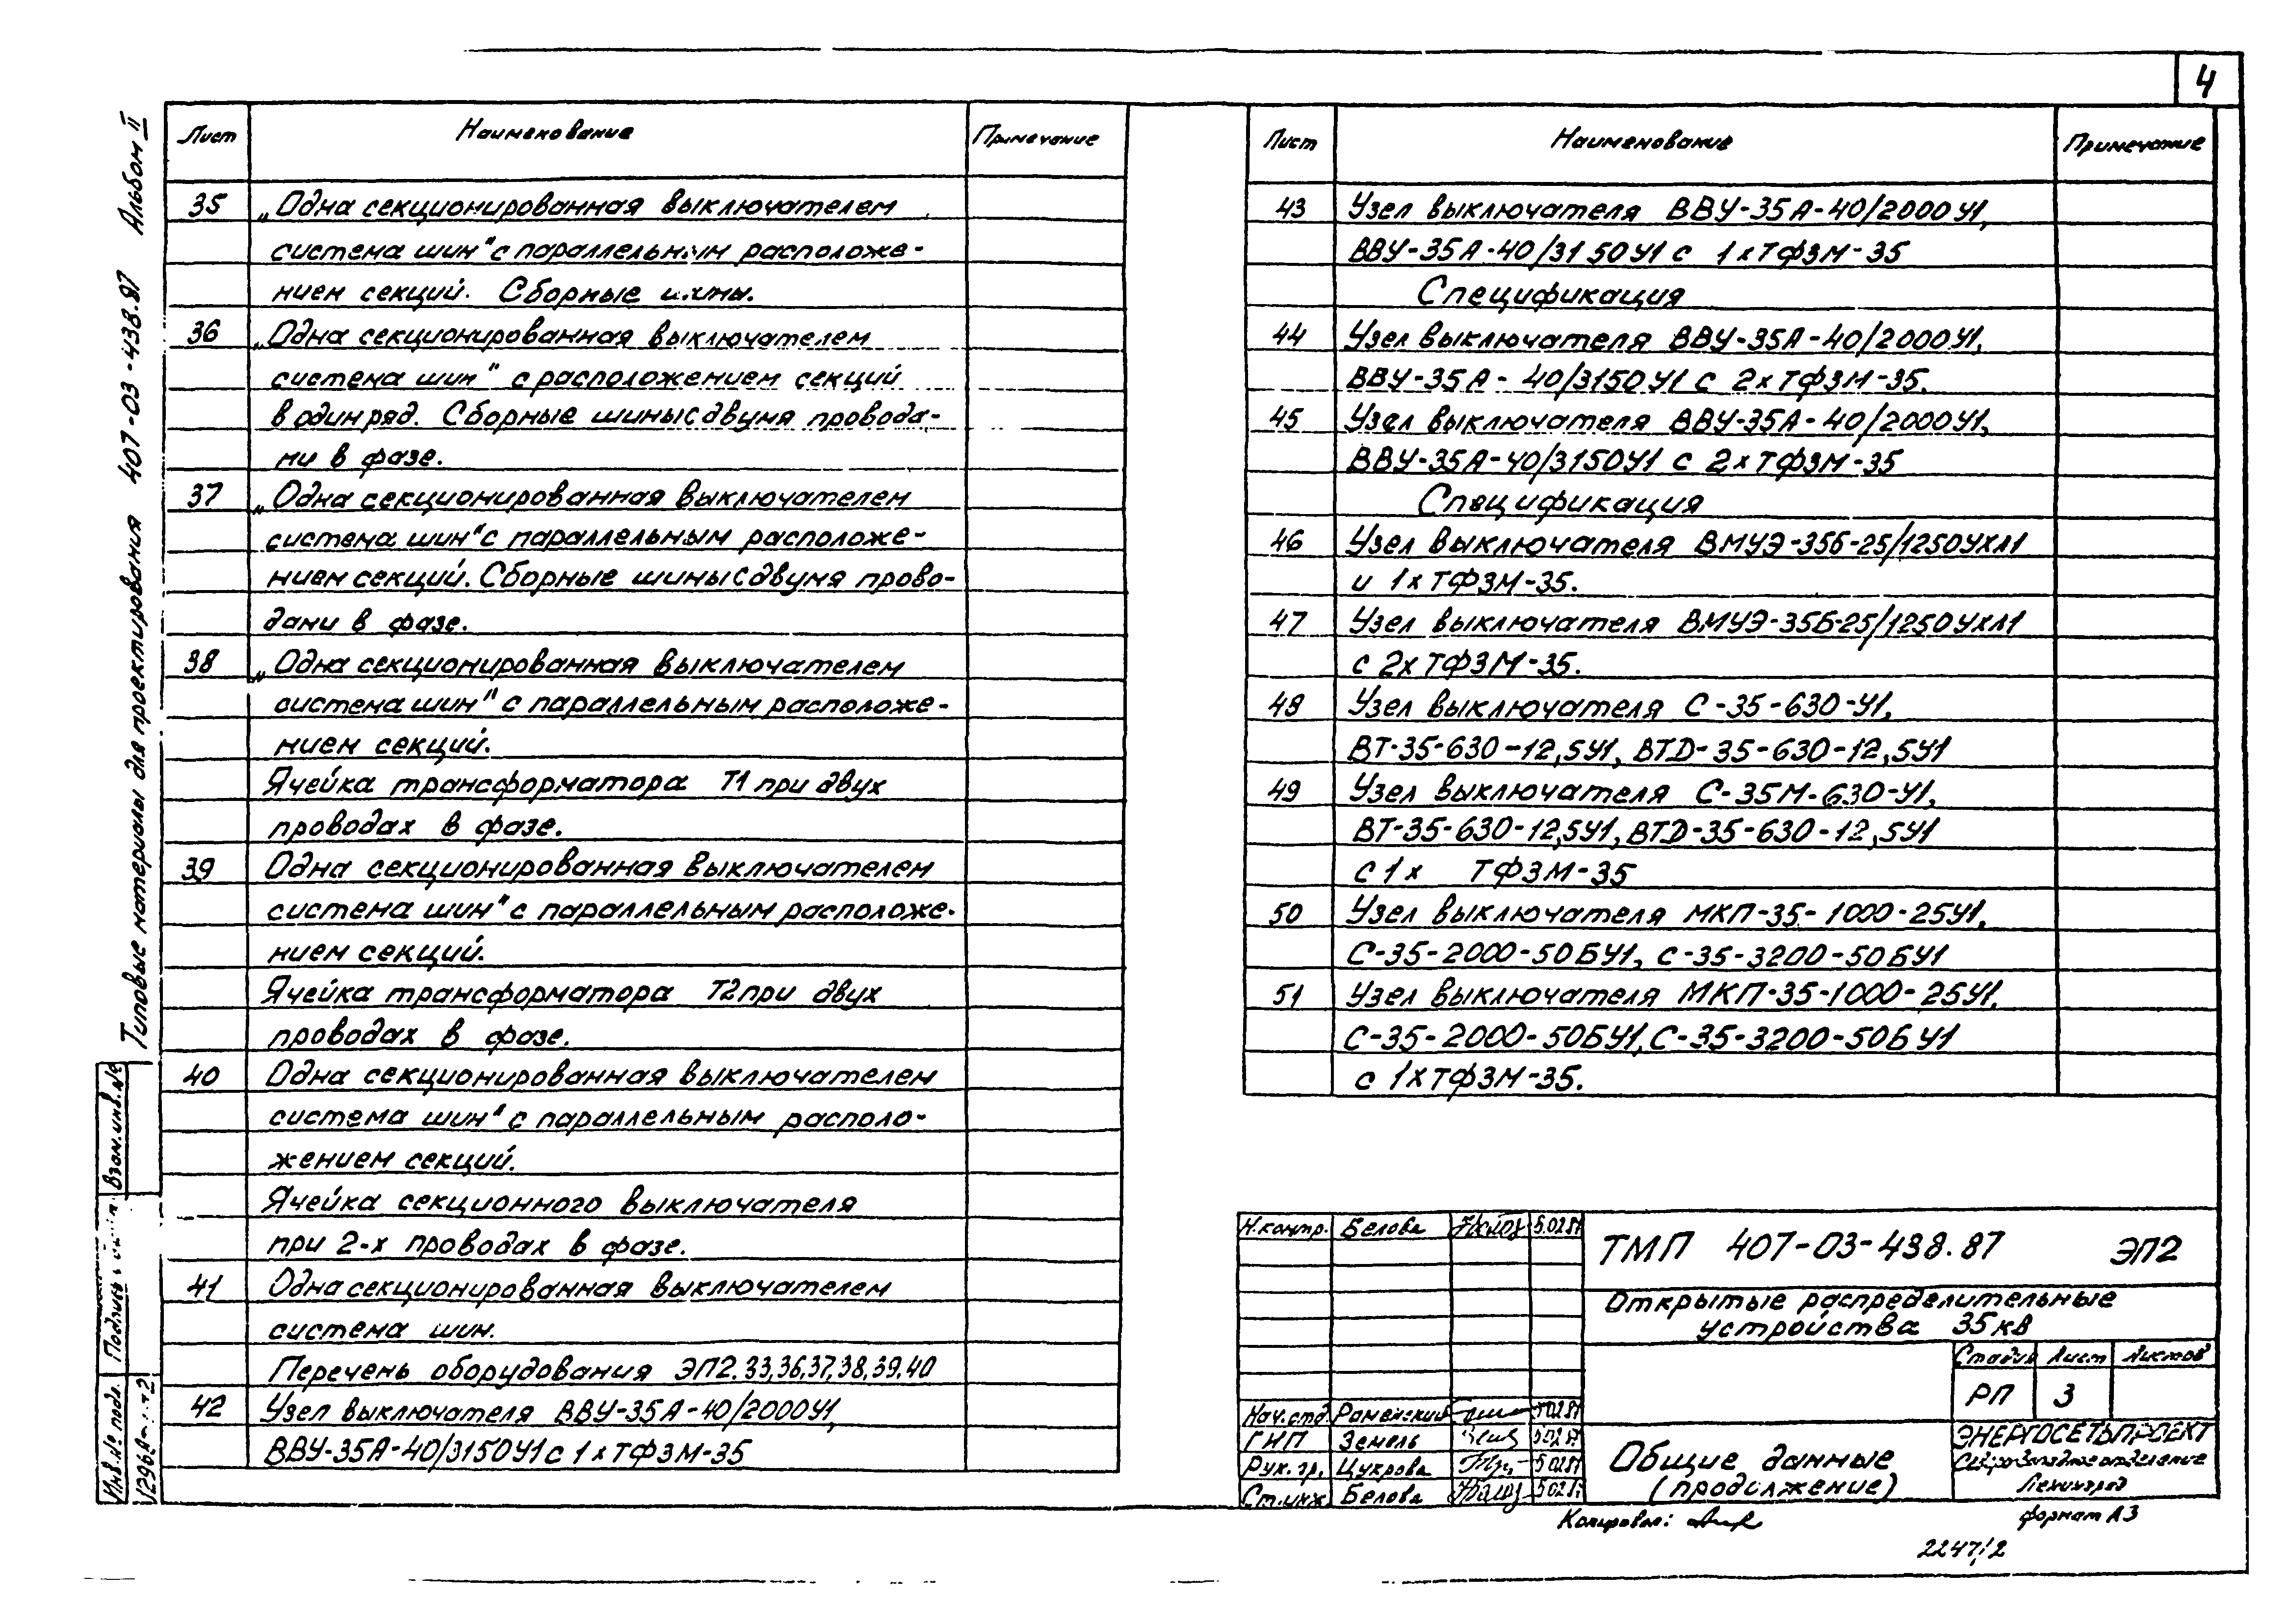 4
Альбом II
Типовые материалы для проектирования 407-03-438.87
Лист Наименование Примечание
35 „Одна секционированная выключателем
система шин" с параллельным расположе-
нием секций. Сборные шины.
36 „Одна секционированная выключателем
система шин" с расположением секций
в один ряд. Сборные шины с двумя провода-
ми в фазе.
37 „Одна секционированная выключателем
система шин" с параллельным расположе-
нием секций. Сборные шины с двумя прово-
дами в фазе.
38 „Одна секционированная выключателем
система шин" с параллельным расположе-
нием секций.
Ячейка трансформатора Т1 при двух
проводах в фазе.
39 Одна секционированная выключателем
система шин" с параллельным расположе-
нием секций.
Ячейка трансформатора Т2 при двух
проводах в фазе.
40 Одна секционированная выключателем
система шин" с параллельным располо-
жением секций.
Ячейка секционного выключателя
при 2-х проводах в фазе.
41 Одна секционированная выключателем
система шин.
Перечень оборудования ЭП2.33,36,37,38,39,40
42 Узел выключателя ВВУ-35А-40/2000У1,
ВВУ-35А-40/3150У1 с 1хТФЗМ-35
Лист Наименование Примечание
43 Узел выключателя ВВУ-35А-40/2000У1,
ВВУ-35А-40/3150У1 с 1хТФЗМ-35
Спецификация
44 Узел выключателя ВВУ-35А-40/2000У1,
ВВУ-35А-40/3150У1 с 2хТФЗМ-35.
45 Узел выключателя ВВУ-35А-40/2000У1,
ВВУ-35А-40/3150У1 с 2хТФЗМ-35
Спецификация
46 Узел выключателя ВМУЭ-35Б-25/1250УХЛ1
и 1хТФЗМ-35.
47 Узел выключателя ВМУЭ-35Б-25/1250УХЛ1
с 2хТФЗМ-35.
48 Узел выключателя С-35-630-У1,
ВТ-35-630-12,5У1, ВТД-35-630-12,5У1
49 Узел выключателя С-35М-630-У1,
ВТ-35-630-12,5У1, ВТД-35-630-12,5У1
с 1х ТФЗМ-35
50 Узел выключателя МКП-35-1000-25У1,
С-35-2000-50БУ1, С-35-3200-50БУ1
51 Узел выключателя МКП-35-1000-25У1,
С-35-2000-50БУ1, С-35-3200-50БУ1
с 1хТФЗМ-35.
Н.контр. Белова 5.02.87
ТМП 407-03-438.87 ЭП2
Открытые распределительные
устройства 35кВ
Стадия Лист Листов
РП 3
Нач.отд. Роменский 5.02.87
ГИП Земель 5.02.87
Рук. гр. Цукрова 5.02.87
Ст.инж Белова 5.02.87
Общие данные
(продолжение)
ЭНЕРГОСЕТЬПРОЕКТ
Северо-Западное отделение
Ленинград
Копировал:
формат А3
2247/2
Взам.инв.№
Подпись
Инв.№ подл.